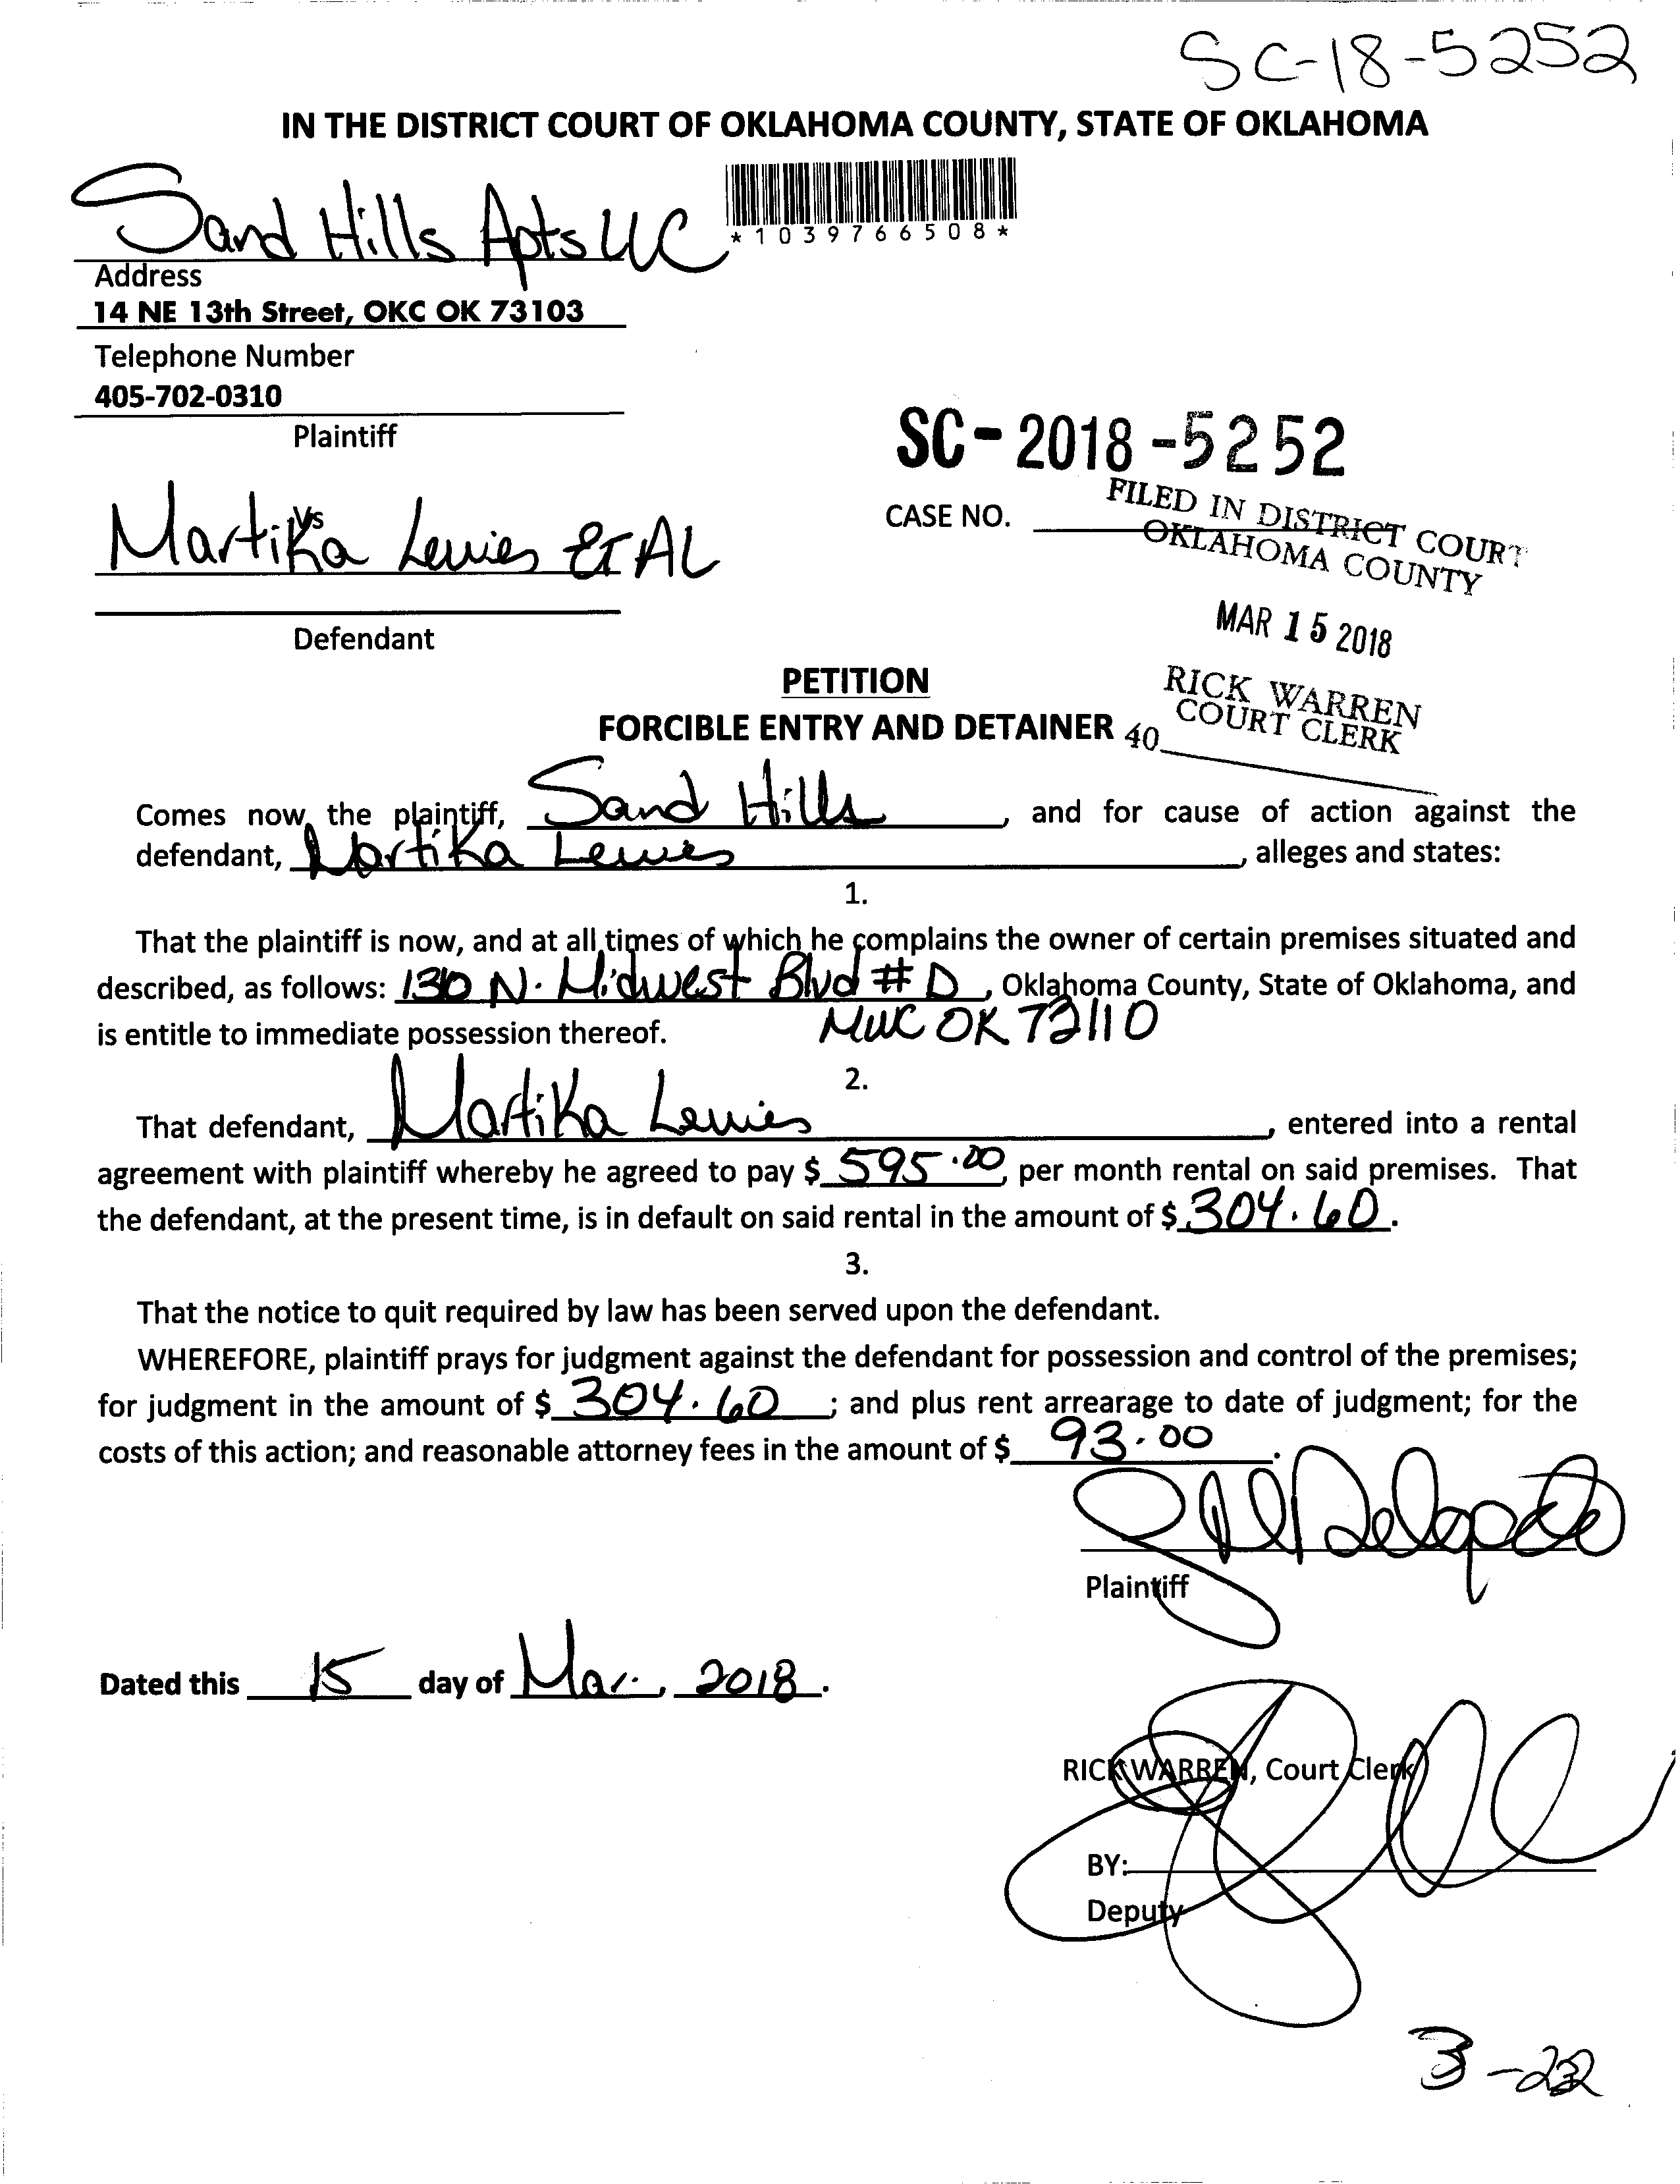 SC-18-5252
IN THE DISTRICT COURT OF OKLAHOMA COUNTY, STATE OF OKLAHOMA
Sand Hills Apts LLC
*1039766508*
Address
14 NE 13th Street, OKC OK 73103
Telephone Number
405-702-0310
Plaintiff
SC-2018-5252
vs
CASE NO.
FILED IN DISTRICT COURT
OKLAHOMA COUNTY
Martika Lewies ET AL
MAR 15 2018
Defendant
RICK WARREN
COURT CLERK
PETITION
FORCIBLE ENTRY AND DETAINER
40
Comes now the plaintiff, Sand Hills, and for cause of action against the
defendant, Martika Lewies, alleges and states:
1.
That the plaintiff is now, and at all times of which he complains the owner of certain premises situated and
described, as follows: 1310 N. Midwest Blvd # D, Oklahoma County, State of Oklahoma, and
is entitle to immediate possession thereof. MWC OK 73110
2.
That defendant, Martika Lewies, entered into a rental
agreement with plaintiff whereby he agreed to pay $ 595.00, per month rental on said premises. That
the defendant, at the present time, is in default on said rental in the amount of $ 304.60.
3.
That the notice to quit required by law has been served upon the defendant.
WHEREFORE, plaintiff prays for judgment against the defendant for possession and control of the premises;
for judgment in the amount of $ 304.60; and plus rent arrearage to date of judgment; for the
costs of this action; and reasonable attorney fees in the amount of $ 93.00.
Plaintiff
Dated this 15 day of Mar., 2018.
RICK WARREN, Court Clerk
BY:
Deputy
3-22